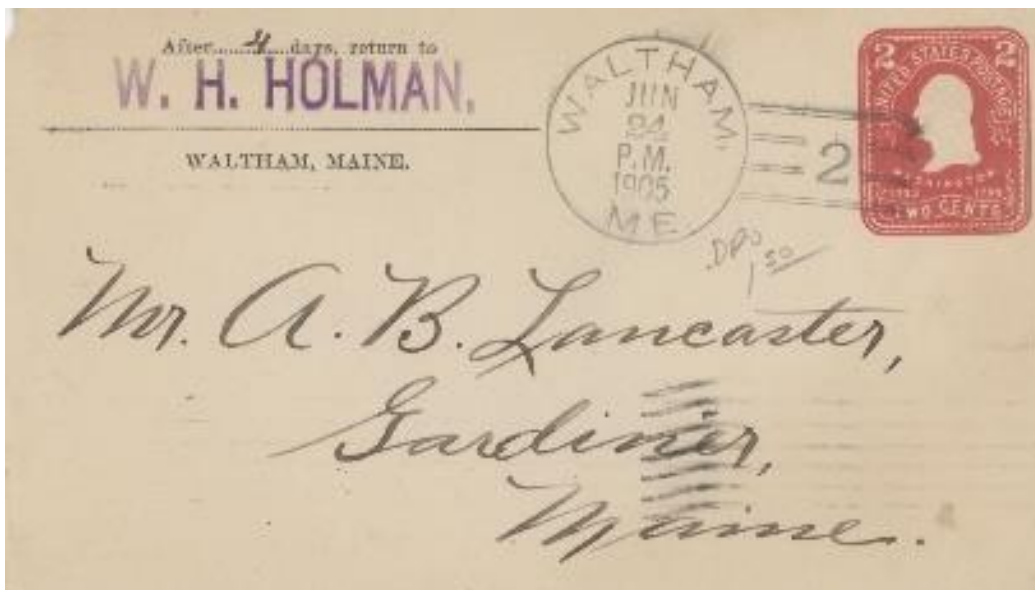 After.....4....days, return to
W. H. HOLMAN.
WALTHAM, MAINE.
WALTHAM,
JUN
24
P.M.
1905
ME
2
2 2
UNITED STATES POSTAGE
WASHINGTON
TWO CENTS
DPO
1 50
Mr. A. B. Lancaster,
Gardiner,
Maine.